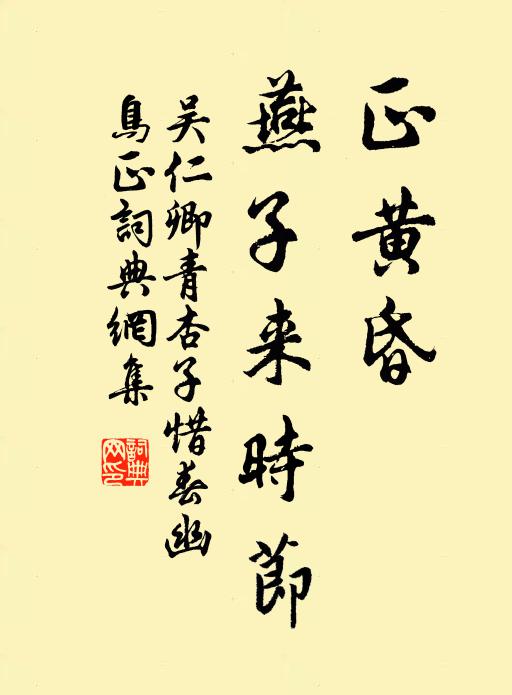 正黄昏
燕子来時節
吴仁卿青杏子惜春幽
鳥正詞典網集
詞典网印